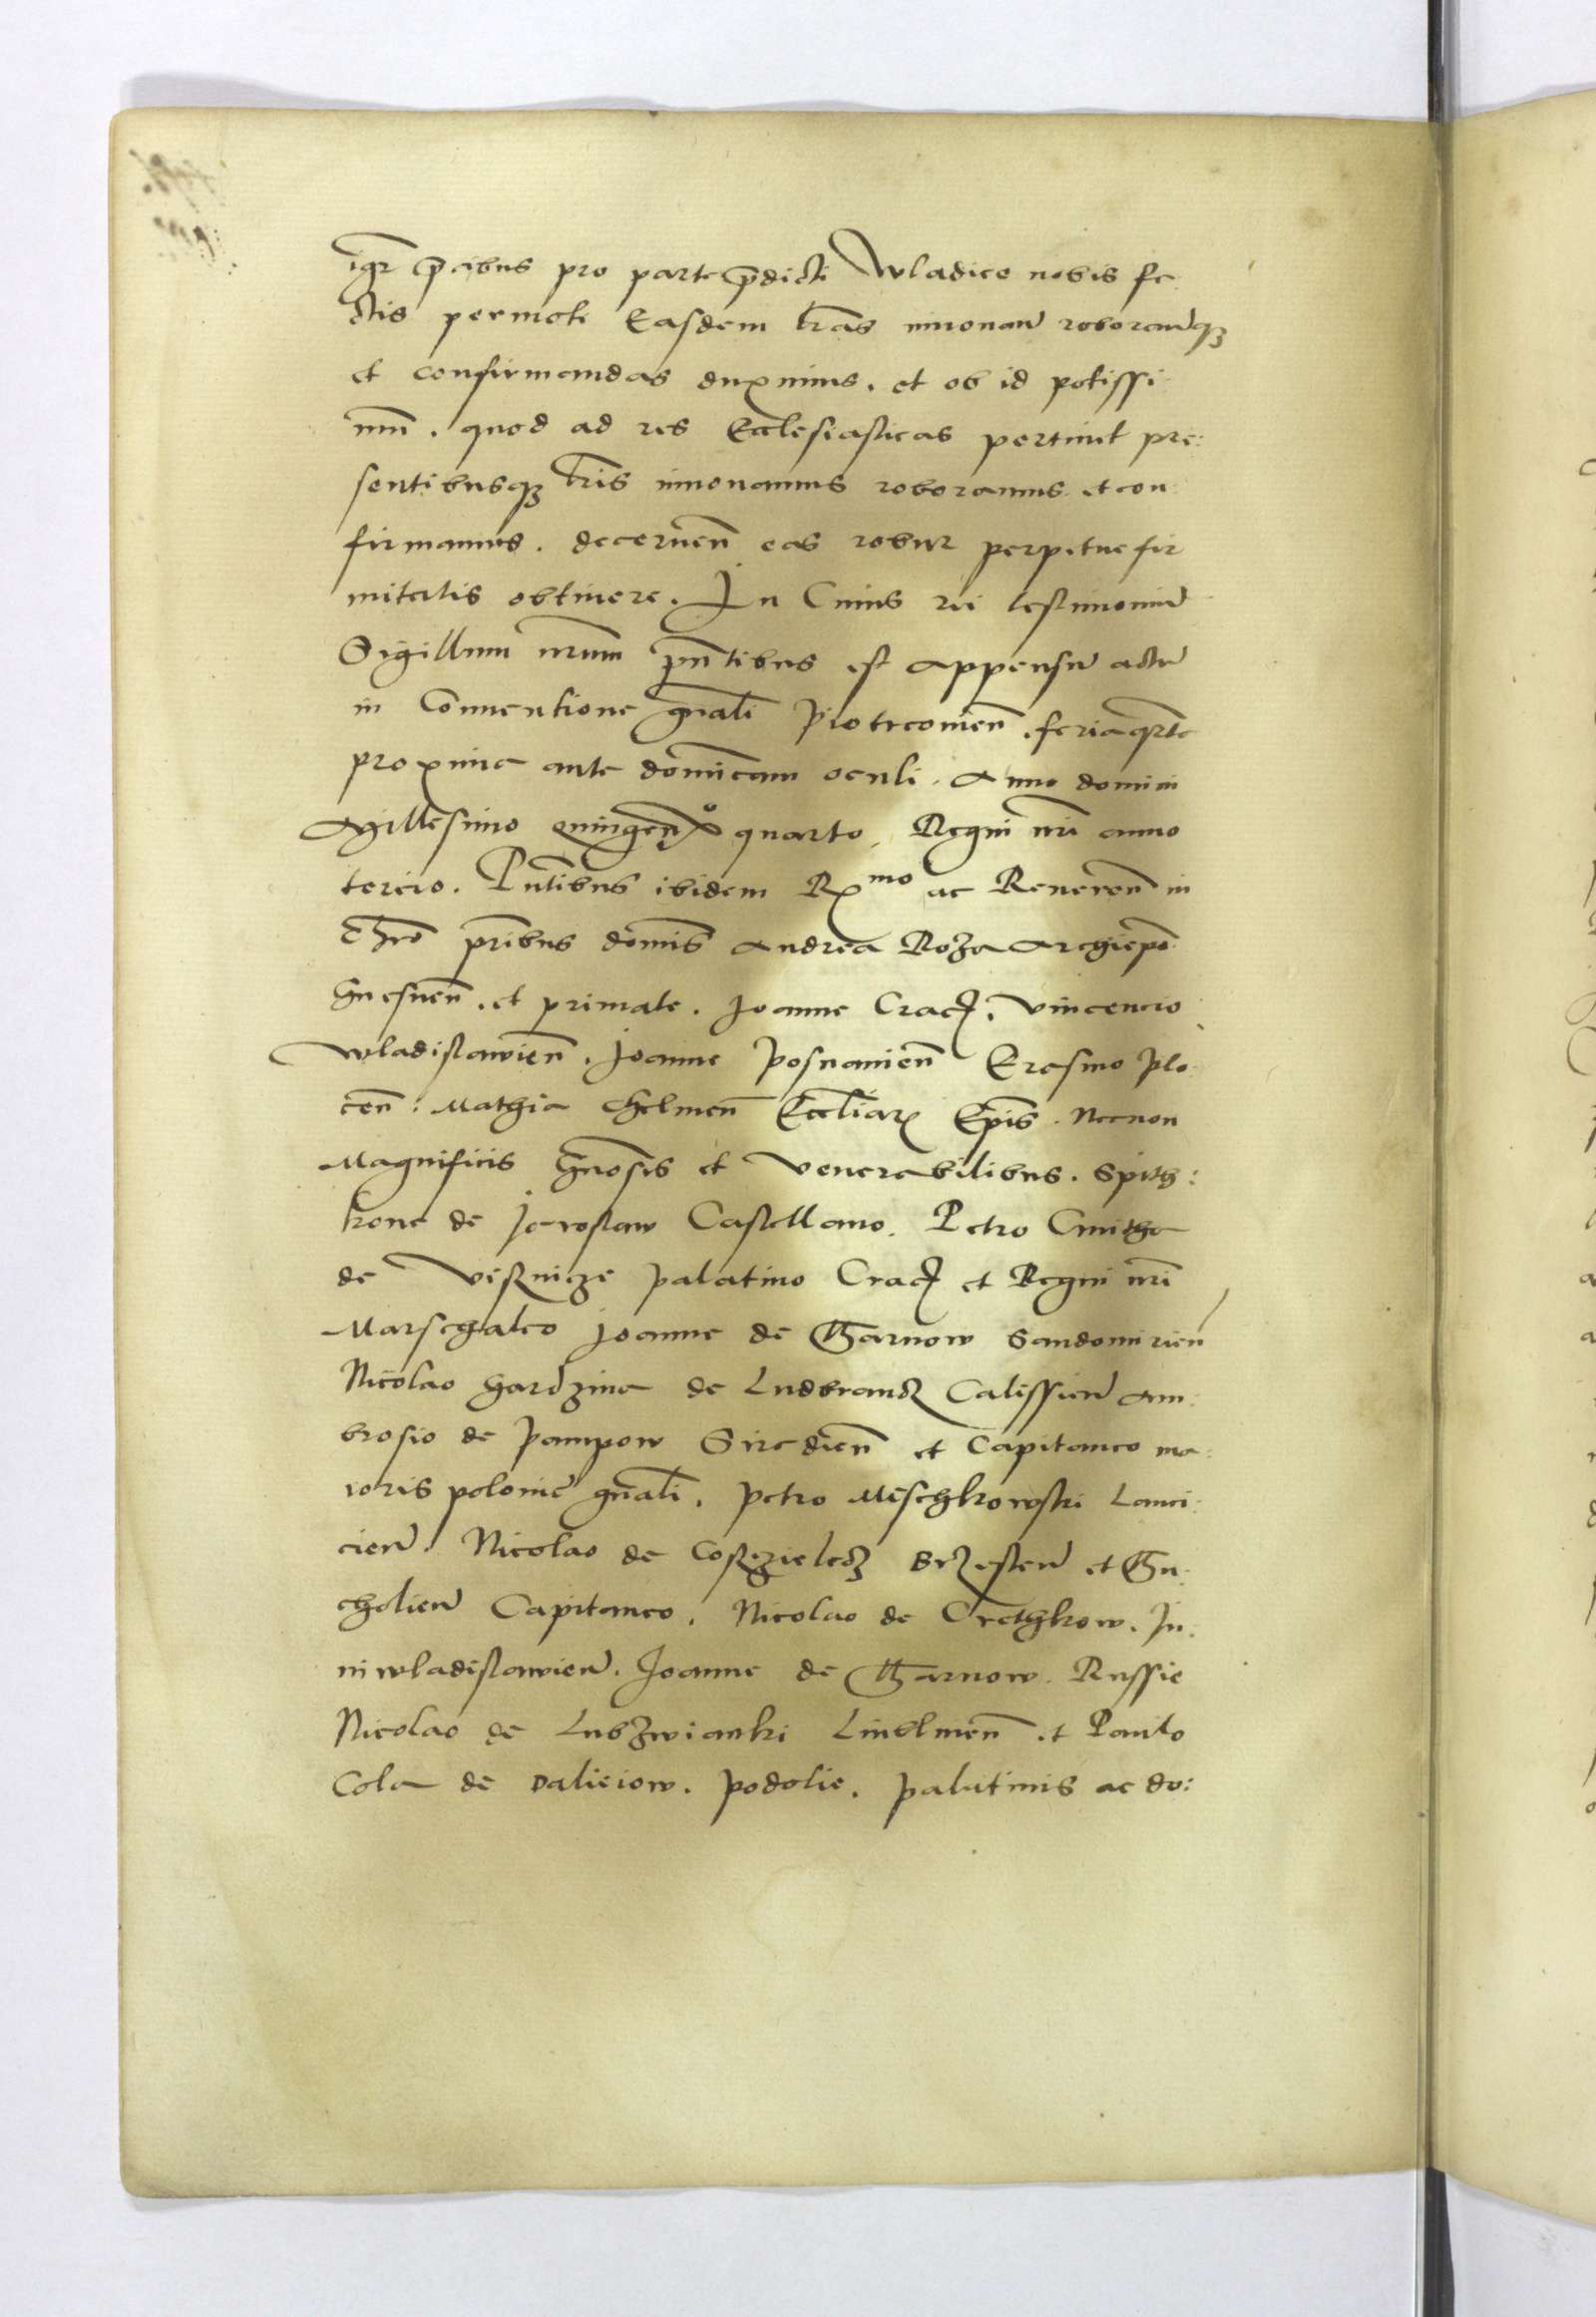 igr p̄cibus pro parte p̄dicti Wladice nobis fa
ctis permoti Easdem l̄ras innouan̄ roborandasqꝫ
et confirmandas duximus. et ob id potissi
mū. quod ad res Ecclesiasticas pertinet pre:
sentibusqꝫ l̄ris innouamus roboramus et con
firmamus. decernen̄ eas robur perpetue fir
mitatis obtinere. In Cuius rei testimoniū
Sigillum nr̄um p̄ntibus est appensū actū
in Conuentione gn̄ali Piotrconien̄. feria qrta
proxima ante dominicam oculi. Anno domini
Millesimo quingen̄ᵒ quarto. Regni nr̄i anno
tercio. Pn̄tibus ibidem Rx^mo ac Reueren̄ in
Chr̄o pr̄ibus dominis Andrea Roza Archiepo
Gnesnen̄. et primate. Joanne Crac̄. Vincencio
Wladislauien̄. Joanne Posnanien̄ Erasmo Plo
cen̄: Mathia Chelmen̄ Eccl̄iarꝫ Ep̄is. Necnon
Magnificis Gn̄osis et Venerabilibus. Spith:
kone de Jaroslaw Castellano. Petro Cmitha
de Visznicze Palatino Crac̄ et Regni nr̄i
Marschalco Joanne de Tharnow Sandomirien̄
Nicolao Gardzina de Ludbrancz Calissien̄ Am:
brosio de Pampow Siradien̄ et Capitaneo ma
ioris polonie gn̄ali. Petro Mischkowski Lanci:
cien̄ Nicolao de Coszczielecz Brzesten̄ et Thu:
cholien̄ Capitaneo. Nicolao de Crethkow. Ju:
niwladislauien̄. Joanne de Tharnow. Russie
Nicolao de Lubzwianki Liublinen̄ et Paulo
Cola de Dalieiow. Podolie. Palatinis ac do: